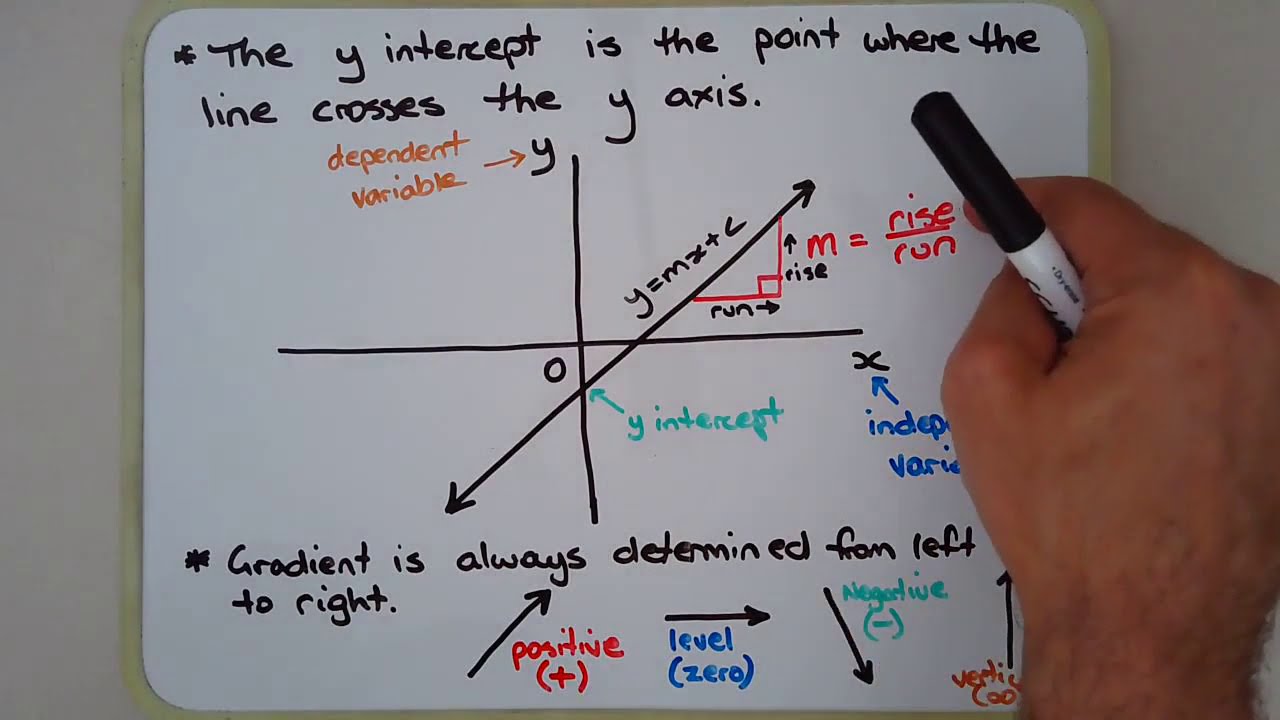 * The y intercept is the point where the
line crosses the y axis.
dependent → y
variable
y=mx+c
↑ m = rise
run
rise
run→
O
x
y intercept
indep
varia
* Gradient is always determined from left
to right.
positive
(+)
level
(zero)
Negative
(-)
vertic
(∞)
Dry-erase